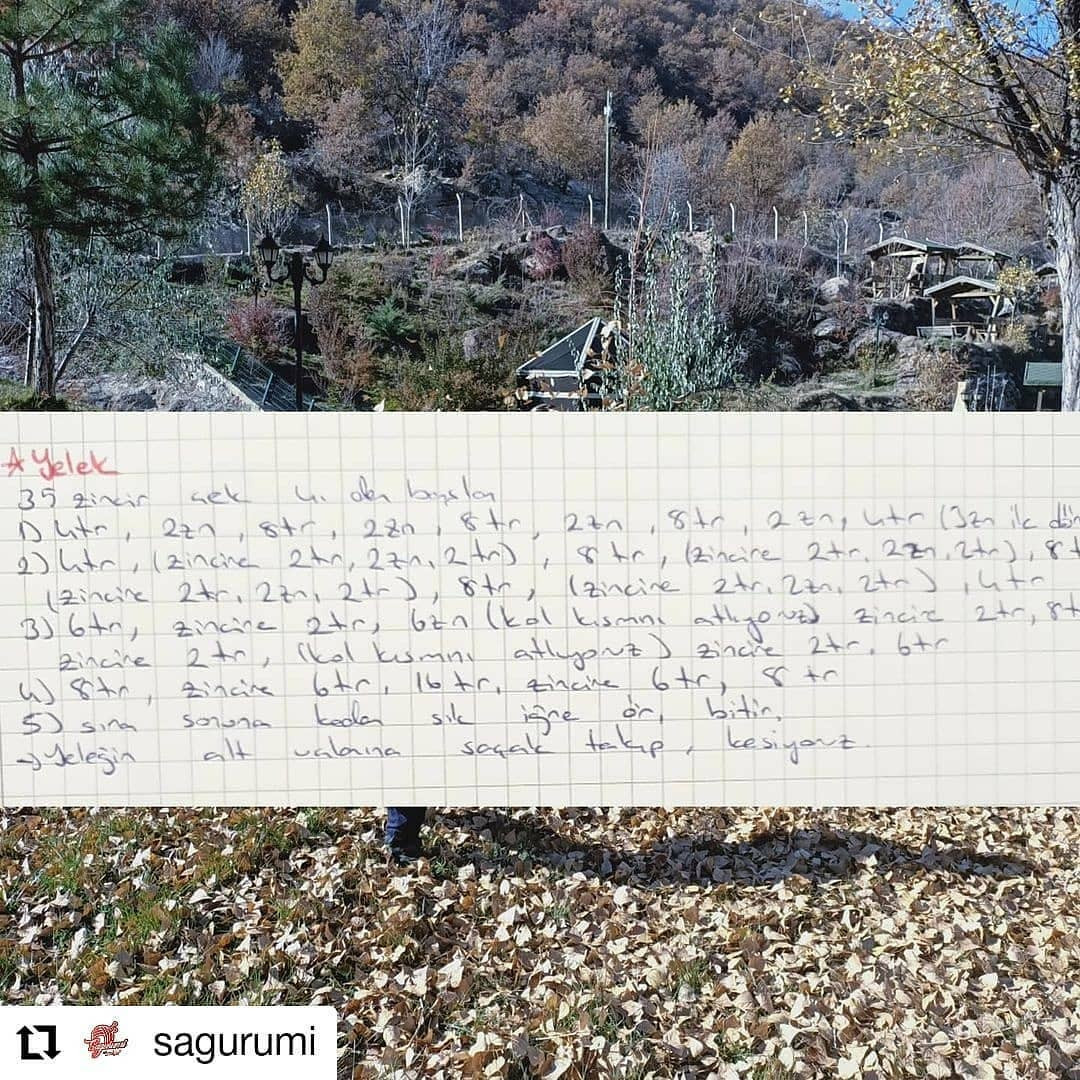 ☆ Yelek
35 zincir çek 4. den başla
1) 4tr, 2zn, 8tr, 2zn, 8tr, 2zn, 8tr, 2zn, 4tr (3zn ilk dön
2) 4tr, (zincire 2tr, 2zn, 2tr), 8tr, (zincire 2tr, 2zn, 2tr), 8t
(zincire 2tr, 2zn, 2tr), 8tr, (zincire 2tr, 2zn, 2tr), 4tr
3) 6tr, zincire 2tr, 6zn (kol kısmını atlıyoruz) zincire 2tr, 8t
zincire 2tr, (kol kısmını atlıyoruz) zincire 2tr, 6tr
4) 8tr, zincire 6tr, 16tr, zincire 6tr, 8tr
5) sıra sonuna kadar sık iğne ör, bitir.
→ Yeleğin alt uclarına saçak takıp, kesiyoruz.
sagurumi